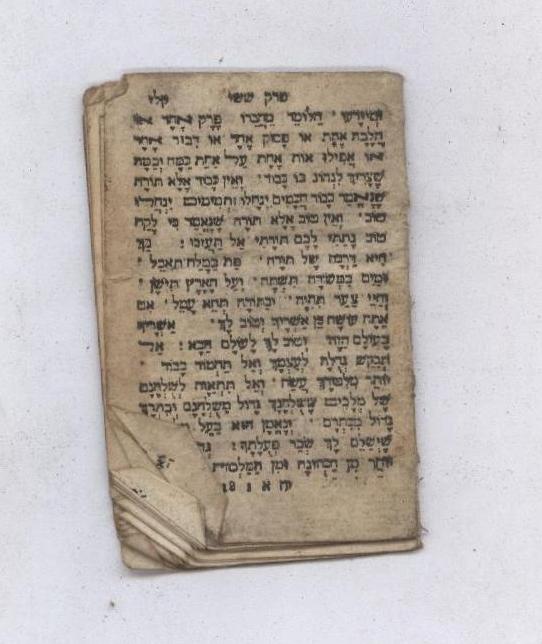 פרק ששי קלז
הלומד מחברו פרק אחד או
הלכה אחת או פסוק אחד או דבור אחד
או אפילו אות אחת על אחת כמה וכמה
שצריך לנהוג בו כבוד ואין כבוד אלא תורה
שנאמר כבוד חכמים ינחלו ותמימים ינחלו
טוב ואין טוב אלא תורה שנאמר כי לקח
טוב נתתי לכם תורתי אל תעזובו : כך
היא דרכה של תורה פת במלח תאכל
ומים במשורה תשתה ועל הארץ תישן
וחיי צער תחיה ובתורה תהא עמל אם
אתה עושה כן אשריך וטוב לך אשריך
בעולם הזה וטוב לך לעולם הבא : אל
תבקש גדולה לעצמך ואל תחמוד כבוד
יותר מלמודך עשה ואל תתאוה לשלחנם
של מלכים ששלחנך גדול משלחנם וכתרך
גדול מכתרם ונאמן הוא בעל
שישלם לך שכר פעלתך :
יותר מן הכהונה ומן המלכות